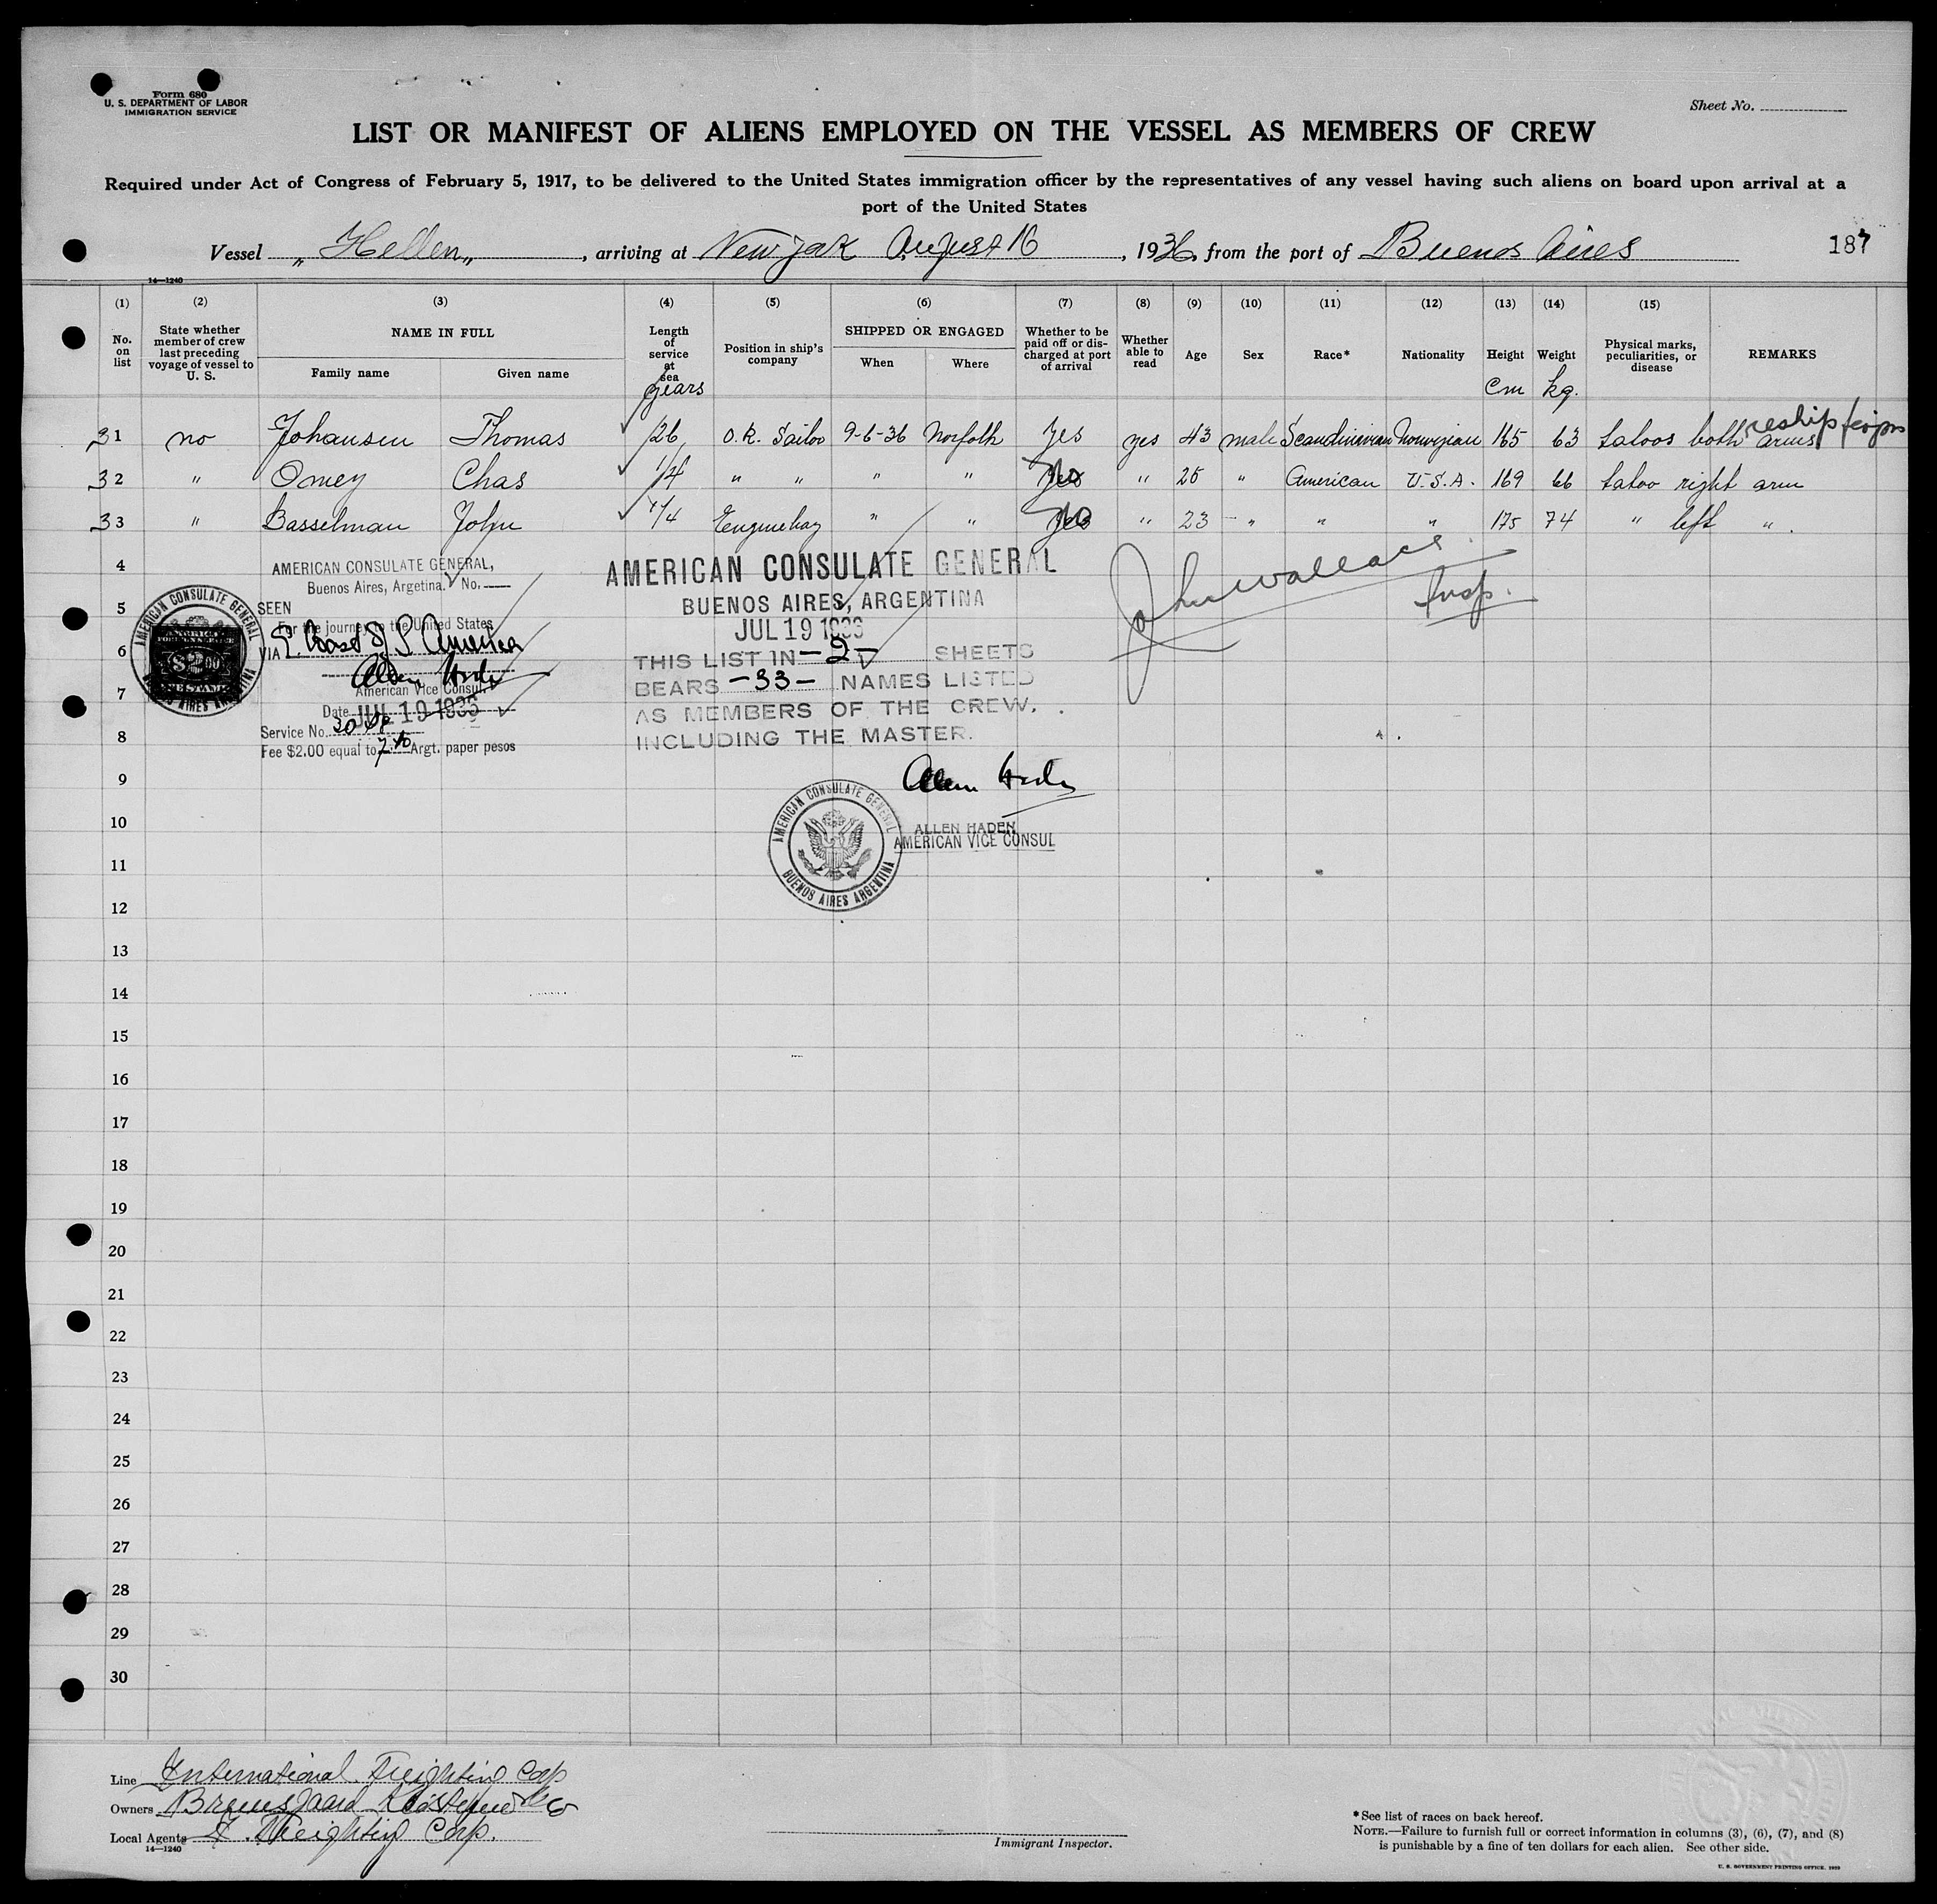 Form 680
U. S. DEPARTMENT OF LABOR
IMMIGRATION SERVICE
Sheet No.
LIST OR MANIFEST OF ALIENS EMPLOYED ON THE VESSEL AS MEMBERS OF CREW
Required under Act of Congress of February 5, 1917, to be delivered to the United States immigration officer by the representatives of any vessel having such aliens on board upon arrival at a
port of the United States
Vessel "Hellen", arriving at New York August 16, 1936, from the port of Buenos Aires 187
14—1240
(1) (2) (3) (4) (5) (6) (7) (8) (9) (10) (11) (12) (13) (14) (15)
No. on list State whether member of crew last preceding voyage of vessel to U. S. NAME IN FULL Family name Given name Length of service at sea Position in ship's company SHIPPED OR ENGAGED When Where Whether to be paid off or discharged at port of arrival Whether able to read Age Sex Race* Nationality Height Weight Physical marks, peculiarities, or disease REMARKS
years cm kg.
31 no Johansen Thomas 26 O.R. Sailor 9-6-36 Norfolk Yes yes 43 male Scandinavian Norwegian 165 63 tatoos both arms reship
32 " Omey Chas 1/4 " " " " No " 25 " American U.S.A. 169 66 tatoo right arm
33 " Basselman John 1/4 Engineboy " " No " 23 " " " 175 74 " left "
4
AMERICAN CONSULATE GENERAL,
Buenos Aires, Argetina. No.
SEEN
For the journey to the United States
VIA E. Coast of S. America
Allen Haden
American Vice Consul.
Date JUL 19 1936
Service No.
Fee $2.00 equal to Argt. paper pesos
AMERICAN CONSULATE GENERAL
BUENOS AIRES ARGENTINA
$2.00
AMERICAN CONSULATE GENERAL
BUENOS AIRES, ARGENTINA
JUL 19 1936
THIS LIST IN —2— SHEETS
BEARS —33— NAMES LISTED
AS MEMBERS OF THE CREW.
INCLUDING THE MASTER.
Allen Haden
ALLEN HADEN
AMERICAN VICE CONSUL
AMERICAN CONSULATE GENERAL
BUENOS AIRES ARGENTINA
John Wallace
Insp.
5
6
7
8
9
10
11
12
13
14
15
16
17
18
19
20
21
22
23
24
25
26
27
28
29
30
Line International Freighting Corp
Owners
Local Agents I. Freighting Corp.
14—1240
Immigrant Inspector.
*See list of races on back hereof.
NOTE.—Failure to furnish full or correct information in columns (3), (6), (7), and (8)
is punishable by a fine of ten dollars for each alien. See other side.
U. S. GOVERNMENT PRINTING OFFICE